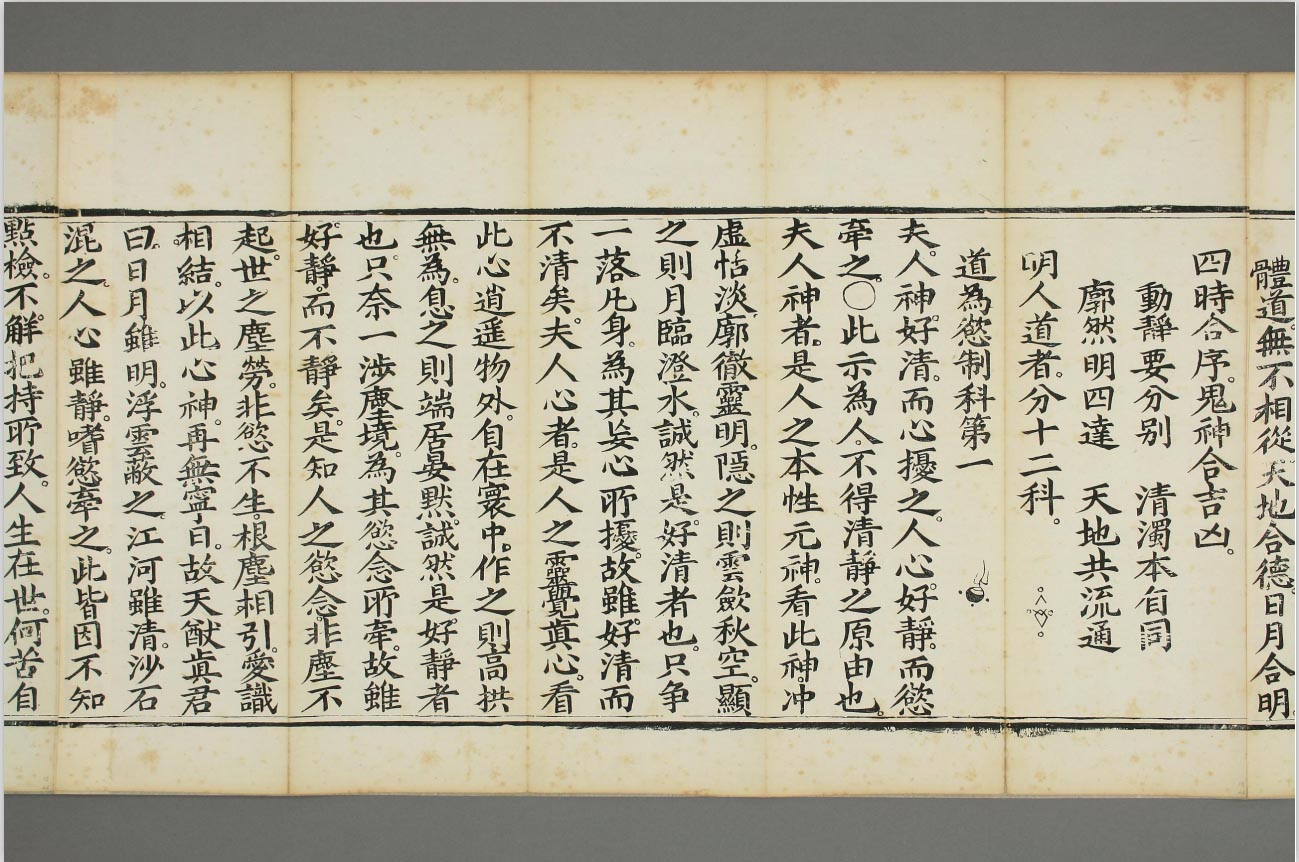 體道。無不相從。天地合德。日月合明。
四時合序。鬼神合吉凶。
動靜要分別　清濁本自同
廓然明四達　天地共流通
明人道者。分十二科。
道為慾制科第一
夫。人神好清。而心擾之。人心好靜。而慾
牽之。〇此示為人。不得清靜之原由也。
夫人神者。是人之本性元神。看此神。冲
虛恬淡。廓徹靈明。隱之則雲歛秋空。顯
之則月臨澄水。誠然是。好清者也。只争
一落凡身。為其妄心所擾。故雖好清而
不清矣。夫人心者。是人之靈覺真心。看
此心逍遥物外。自在寰中。作之則高拱
無為。息之則端居晏默。誠然是好靜者
也。只奈一涉塵境。為其慾念所牽。故雖
好靜。而不靜矣。是知人之慾念。非塵不
起。世之塵勞。非慾不生。根塵相引。愛識
相結。以此心神。再無寧日。故天猷真君
曰。日月雖明。浮雲蔽之。江河雖清。沙石
混之。人心雖靜。嗜慾牽之。此皆因不知
點檢。不解把持所致。人生在世。何苦自